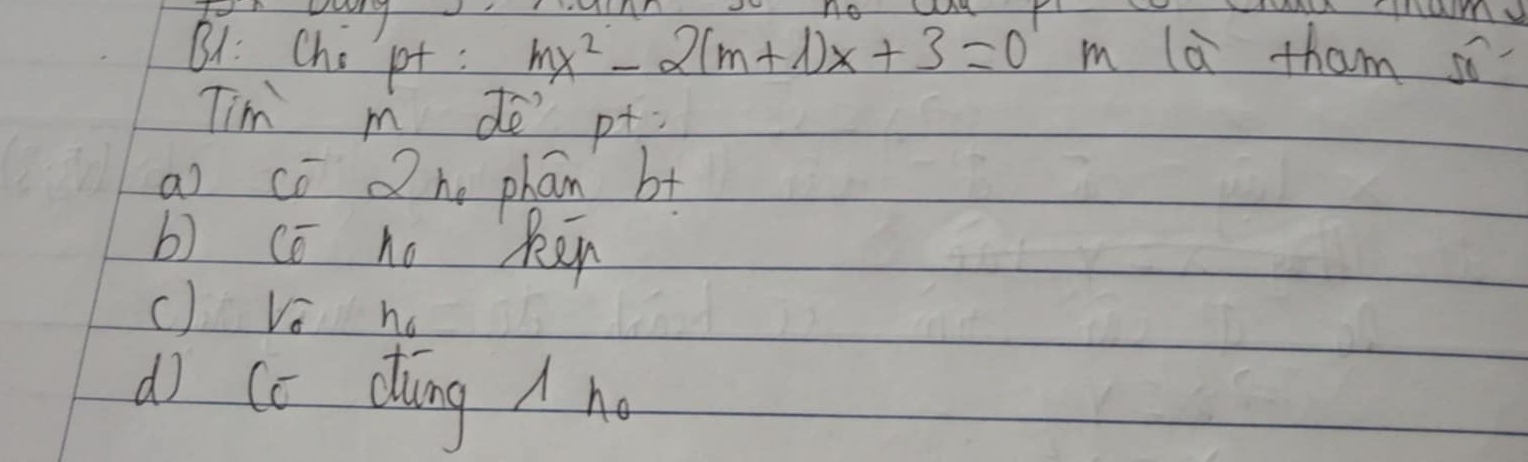 B1: Cho pt: mx² - 2(m+1)x + 3 = 0 m là tham số
Tìm m để pt:
a) có 2 no phân bt
b) có no kép
c) Vô no
d) Có đúng 1 no